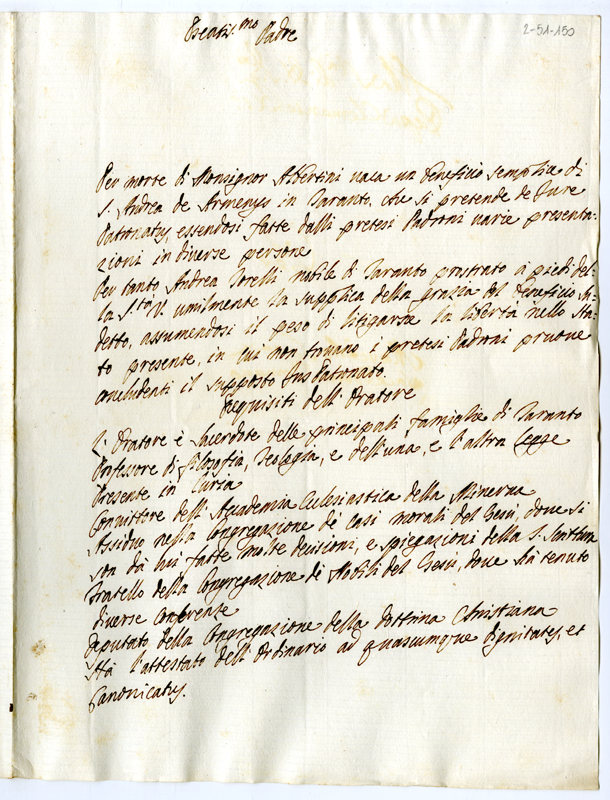 Beatis.mo Padre
2-51-150
Per morte di Monsignor Albertini vaca un beneficio semplice di
S. Andrea de Armenys in Taranto, che si pretende de Jure
Patronatus, essendosi fatte dalli pretesi Padroni varie presenta-
zioni in diverse persone
Per tanto Andrea Torelli nobile di Taranto prostrato a piedi del-
la S.tà V. umilmente la supplica della grazia del beneficio su-
detto, assumendosi il peso di litigarsi la libertà nello sta-
to presente, in cui non trovano i pretesi Padroni pruove
concludenti il supposto Jus Patronato.
Requisiti dell'Oratore
L'Oratore è Sacerdote delle principali famiglie di Taranto
Professore di filosofia, Teologia, e dell'una, e l'altra Legge
Presente in Curia
Convittore dell'Accademia Eclesiastica della Minerva
Assiduo nella Congregazione de' Casi morali del Gesù, dove si
son da lui fatte molte decisioni, e spiegazioni della S. Scrittura
Fratello della Congregazione di Nobili del Gesù, dove hà tenuto
diverse Conferenze
Deputato della Congregazione della dottrina Christiana
Hà l'attestato dell'Ordinario ad quascumque dignitates, et
Canonicatus.